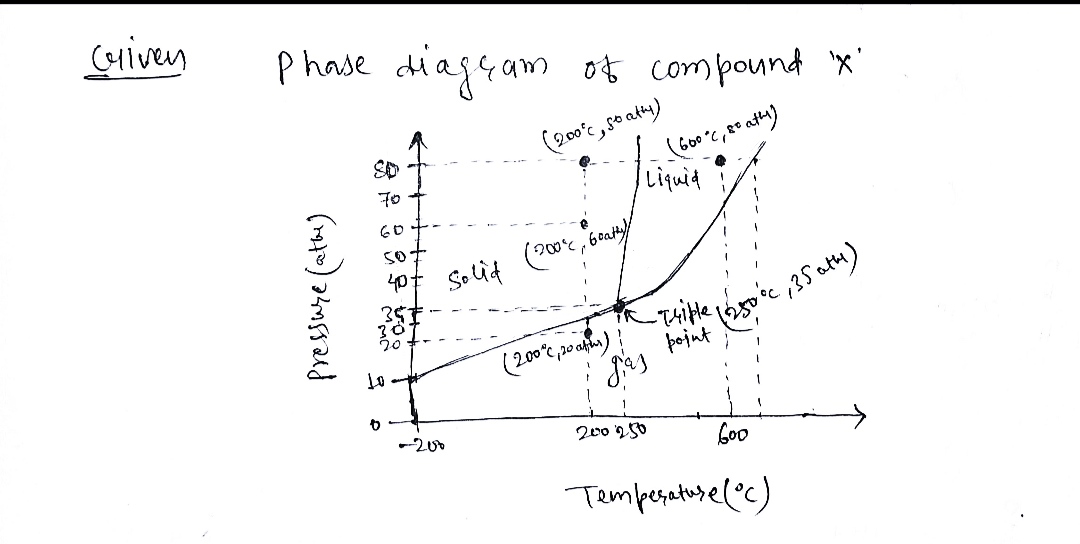 Given Phase diagram of compound 'x'
(200°C, 80 atm)
(600°C, 80 atm)
80
Liquid
70
60
(200°C, 60 atm)
50
Solid
40
35
Triple (250°C, 35 atm)
point
30
20
(200°C, 20 atm)
gas
10
0
-200 200 250 600
Pressure (atm)
Temperature (°C)